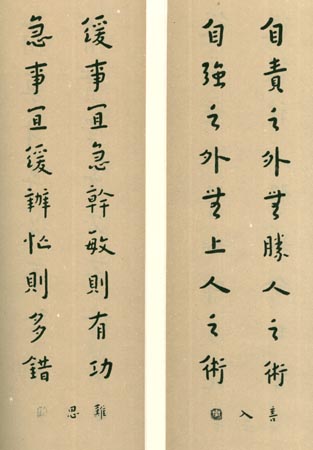 自責之外無勝人之術
自強之外無上人之術
善入
緩事宜急幹敏則有功
急事宜緩辦忙則多錯
難思